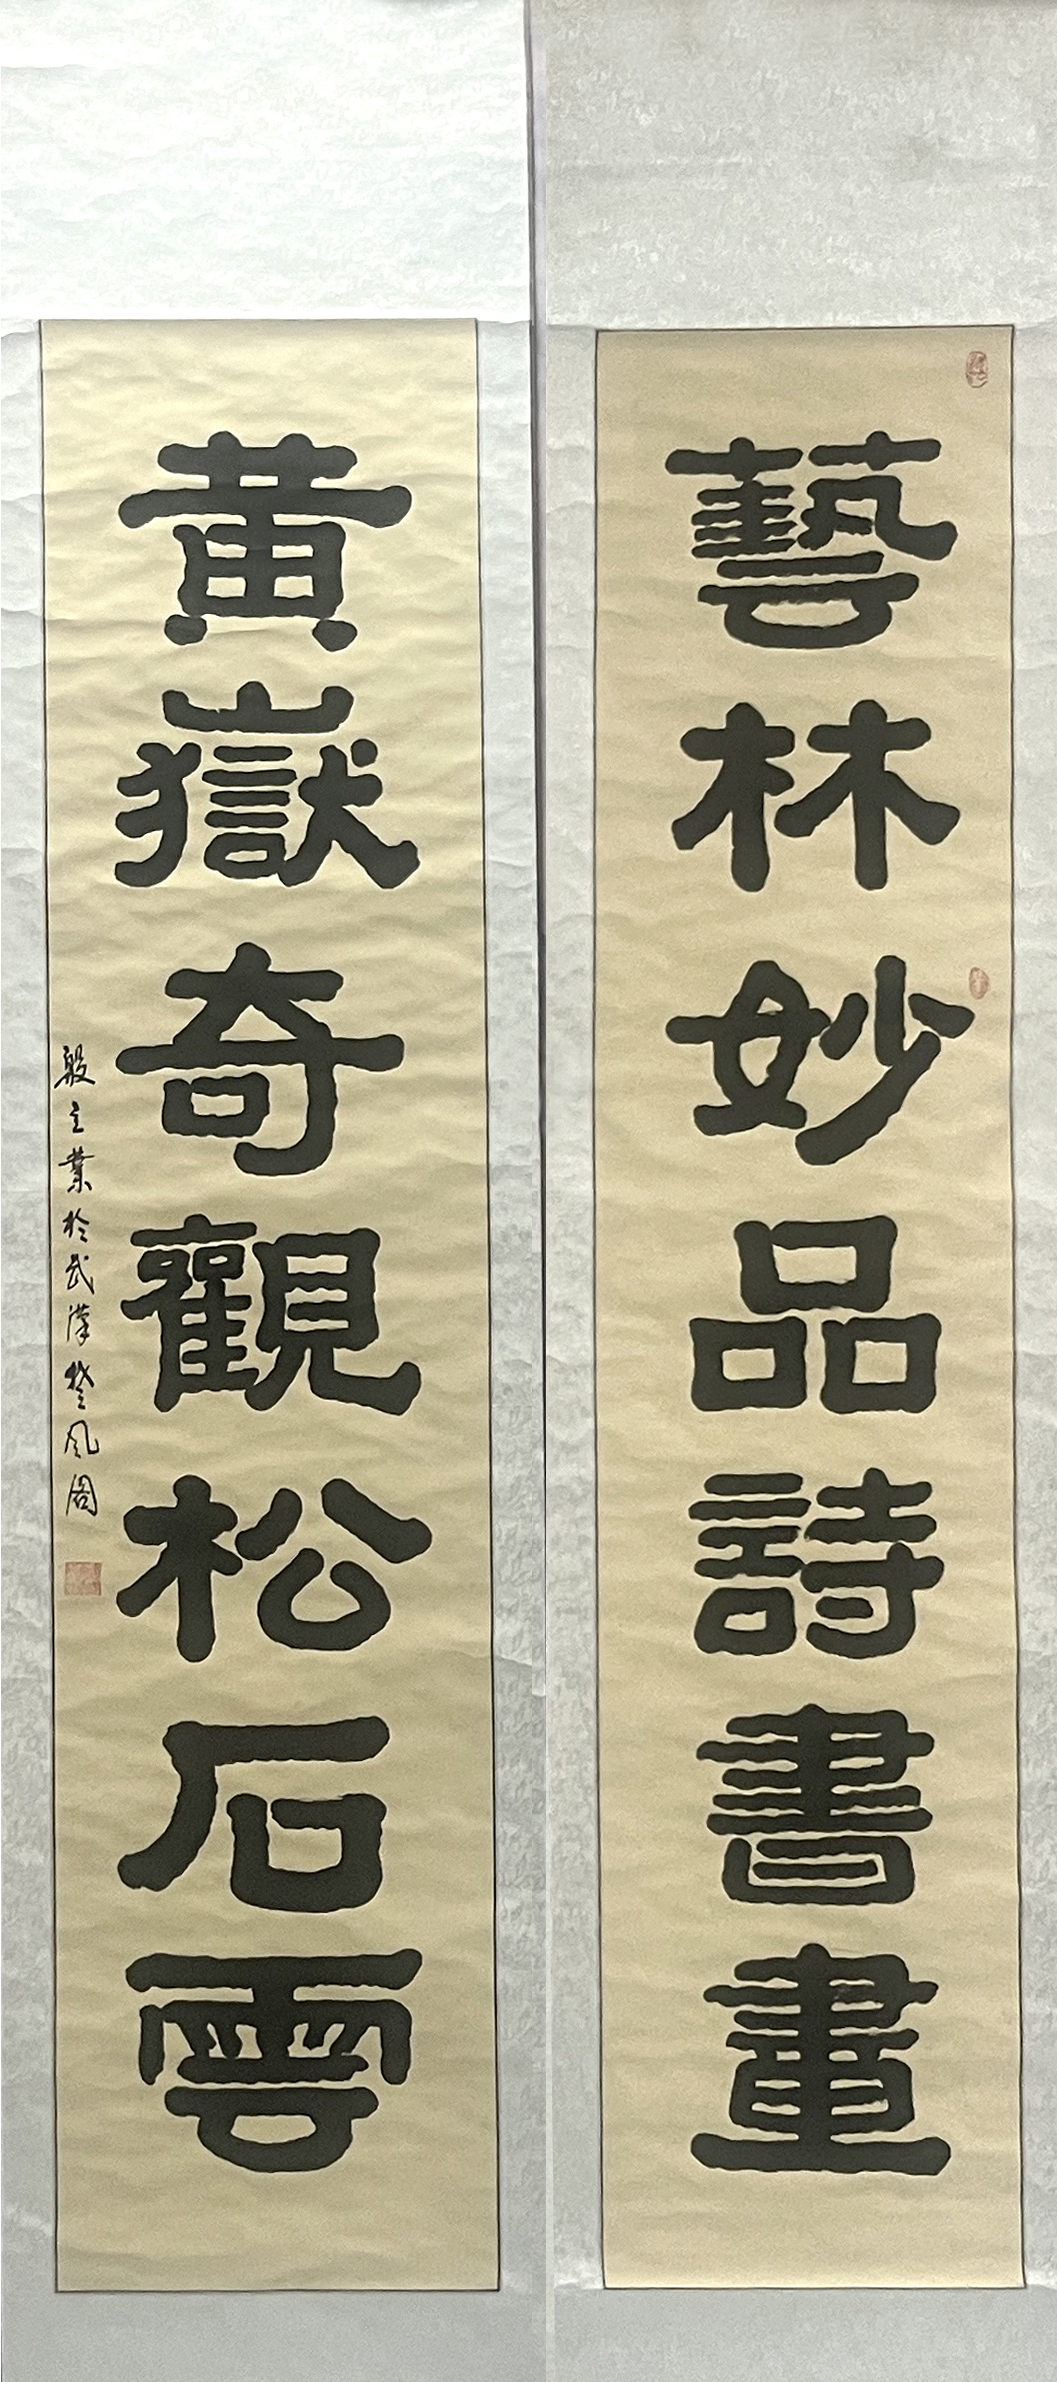 藝林妙品詩書畫
黃嶽奇觀松石雲
殷立業於武漢楚風閣